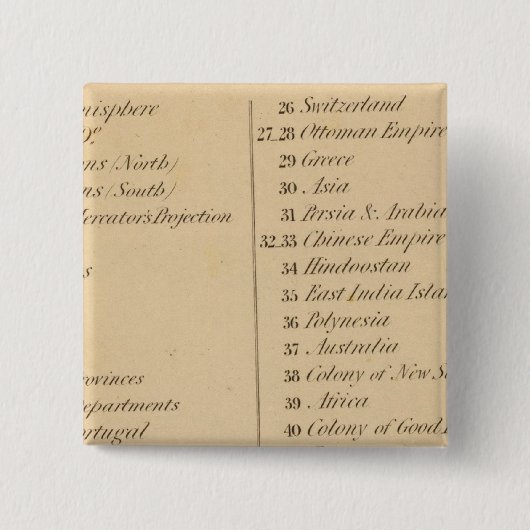 nisphere
Do
ns (North)
ns (South)
Mercator's Projection
s
rovinces
epartments
ortugal
26 Switzerland
27_28 Ottoman Empire
29 Greece
30 Asia
31 Persia & Arabia
32_33 Chinese Empire
34 Hindoostan
35 East India Islan
36 Polynesia
37 Australia
38 Colony of New S
39 Africa
40 Colony of Good